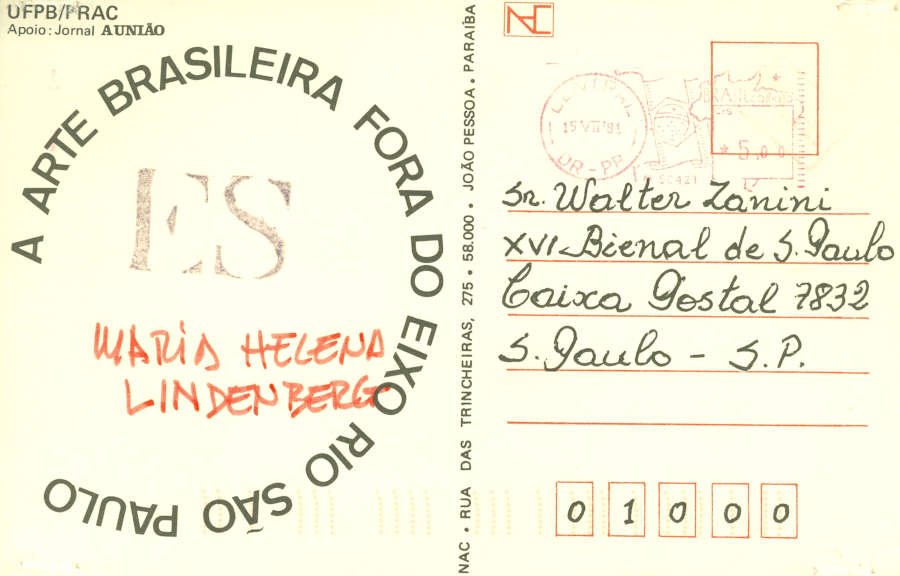 UFPB/PRAC
Apoio: Jornal A UNIÃO
A ARTE BRASILEIRA FORA DO EIXO RIO SÃO PAULO
ES
MARIA HELENA
LINDENBERG
NAC • RUA DAS TRINCHEIRAS, 275 • 58.000 • JOÃO PESSOA • PARAÍBA
NAC
CENTRAL
15 VII 81
DR-PB
BRASIL
*5,00
Sr. Walter Zanini
XVI-Bienal de S. Paulo
Caixa Postal 7832
S. Paulo - S.P.
0 1 0 0 0